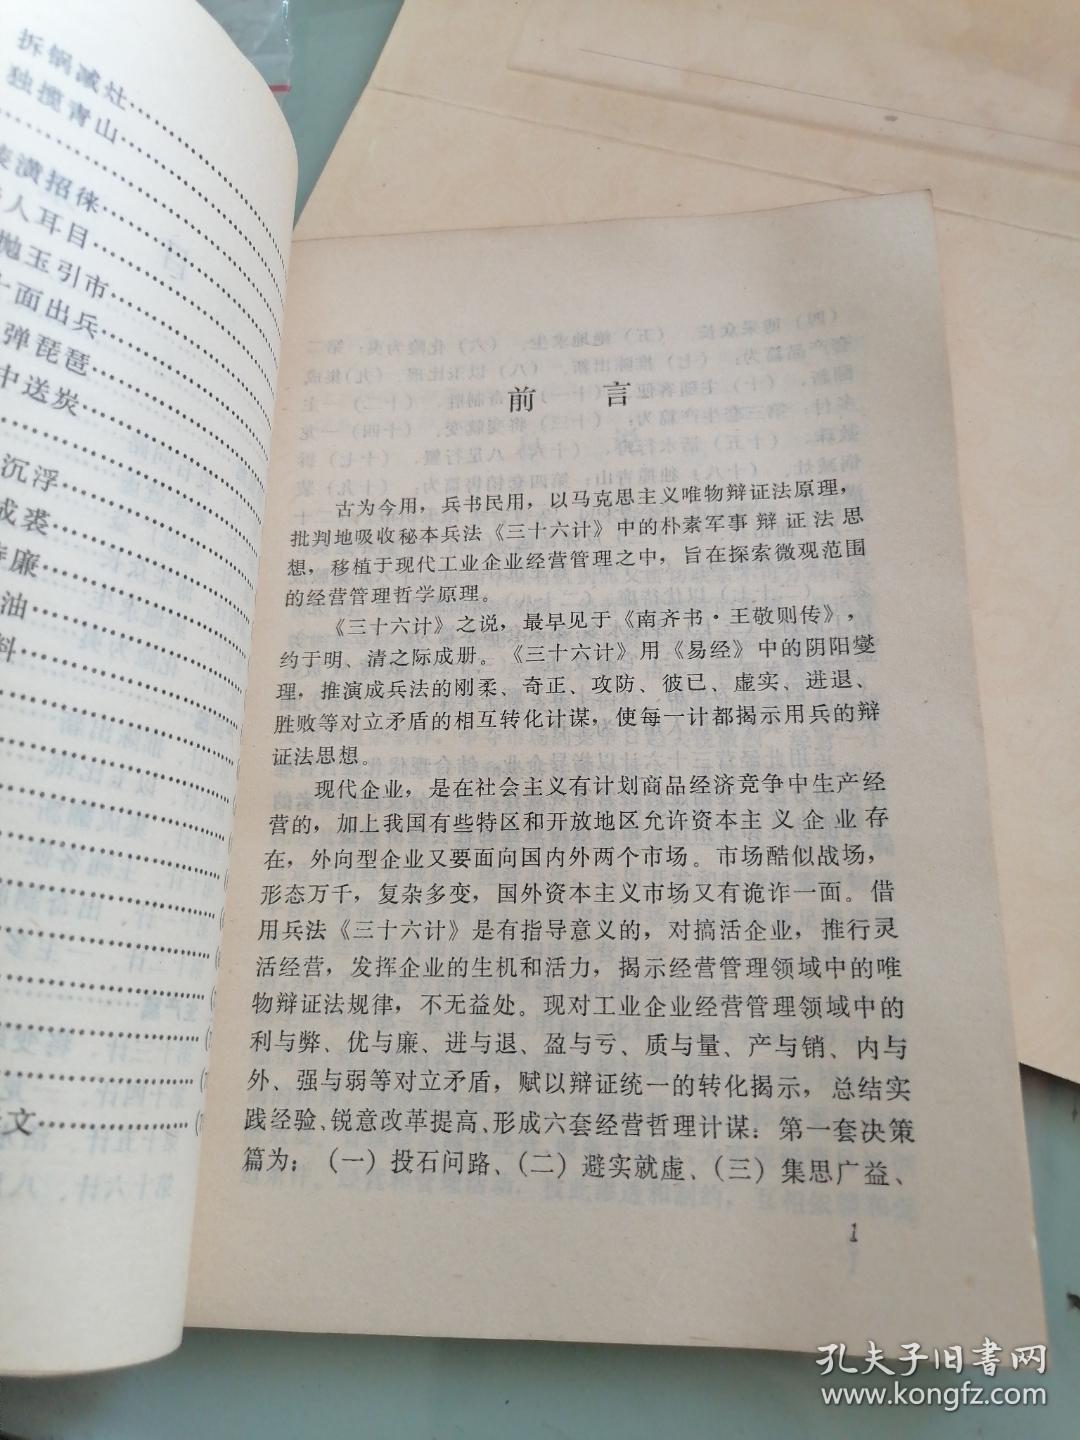 拆锅减灶
独揽青山
潢招徕
人耳目
抛玉引市
面出兵
弹琵琶
中送炭
沉浮
成裘
廉
油
料
文
前言
古为今用，兵书民用，以马克思主义唯物辩证法原理，
批判地吸收秘本兵法《三十六计》中的朴素军事辩证法思
想，移植于现代工业企业经营管理之中，旨在探索微观范围
的经营管理哲学原理。
《三十六计》之说，最早见于《南齐书·王敬则传》，
约于明、清之际成册。《三十六计》用《易经》中的阴阳燮
理，推演成兵法的刚柔、奇正、攻防、彼已、虚实、进退、
胜败等对立矛盾的相互转化计谋，使每一计都揭示用兵的辩
证法思想。
现代企业，是在社会主义有计划商品经济竞争中生产经
营的，加上我国有些特区和开放地区允许资本主义企业存
在，外向型企业又要面向国内外两个市场。市场酷似战场，
形态万千，复杂多变，国外资本主义市场又有诡诈一面。借
用兵法《三十六计》是有指导意义的，对搞活企业，推行灵
活经营，发挥企业的生机和活力，揭示经营管理领域中的唯
物辩证法规律，不无益处。现对工业企业经营管理领域中的
利与弊、优与廉、进与退、盈与亏、质与量、产与销、内与
外、强与弱等对立矛盾，赋以辩证统一的转化揭示，总结实
践经验、锐意改革提高、形成六套经营哲理计谋：第一套决策
篇为：（一）投石问路、（二）避实就虚、（三）集思广益、
1
孔夫子旧书网
www.kongfz.com